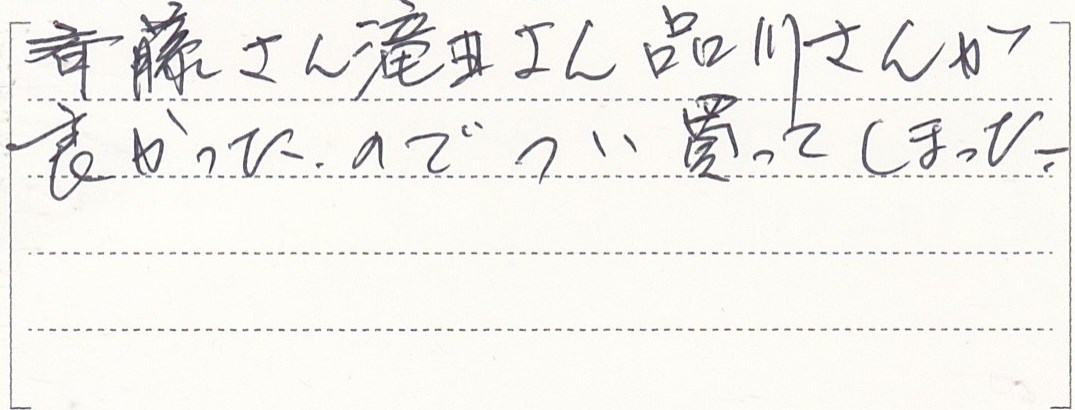 斉藤さん滝井さん品川さんが
良かったのでつい買ってしまった